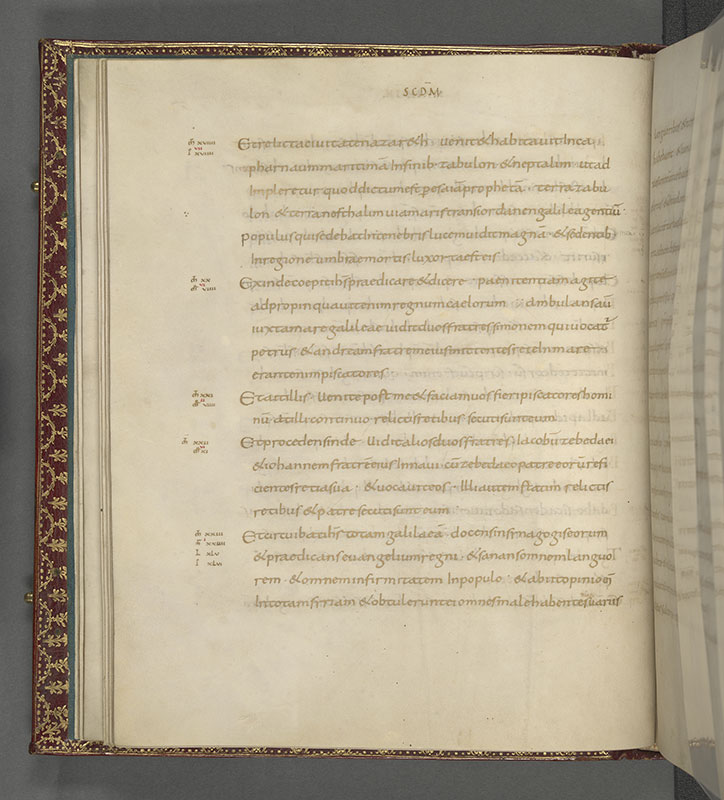 SCDM
Et relicta civitate nazareth venit et habitavit Inca
pharnaum maritimā Infinib· zabulon et neptalim ut ad
Impleretur quod dictum est per esaiā prophetā· terra zabu
lon et terra nepthalim via maris trans iordanen galilea gentiū·
Populus qui sedebat In tenebris lucem vidit magnā· et sedentib;
In regione umbrae mortis· lux orta est eis
Exinde coepit ihs praedicare et dicere· paenitentiam agite
adpropinquavit enim regnum caelorum ambulans autē
iuxta mare galileae vidit duos fratres simonem qui vocatur
petrus et andream fratrem eius mittentes rete In mare
erant enim piscatores·
Et ait illis· Venite post me et faciam vos fieri piscatores homi
nū· at illi continuo relictis retibus secuti sunt eum
Et procedens inde· Vidit alios duos fratres· Iacobū zebedaei
et iohannem fratrē eius In navi cū zebedaeo patre eorū refi
cientes retia sua· et vocavit eos· Illi autem statim relictis
retibus et patre secuti sunt eum
Et circuibat ihs totam galilaeā· docens in sinagogis eorum
et praedicans evangelium regni· et sanans omnem languo
rem· et omnem infirmitatem In populo· et abiit opinio eī
In totam siriam et obtulerunt ei omnes male habentes variis